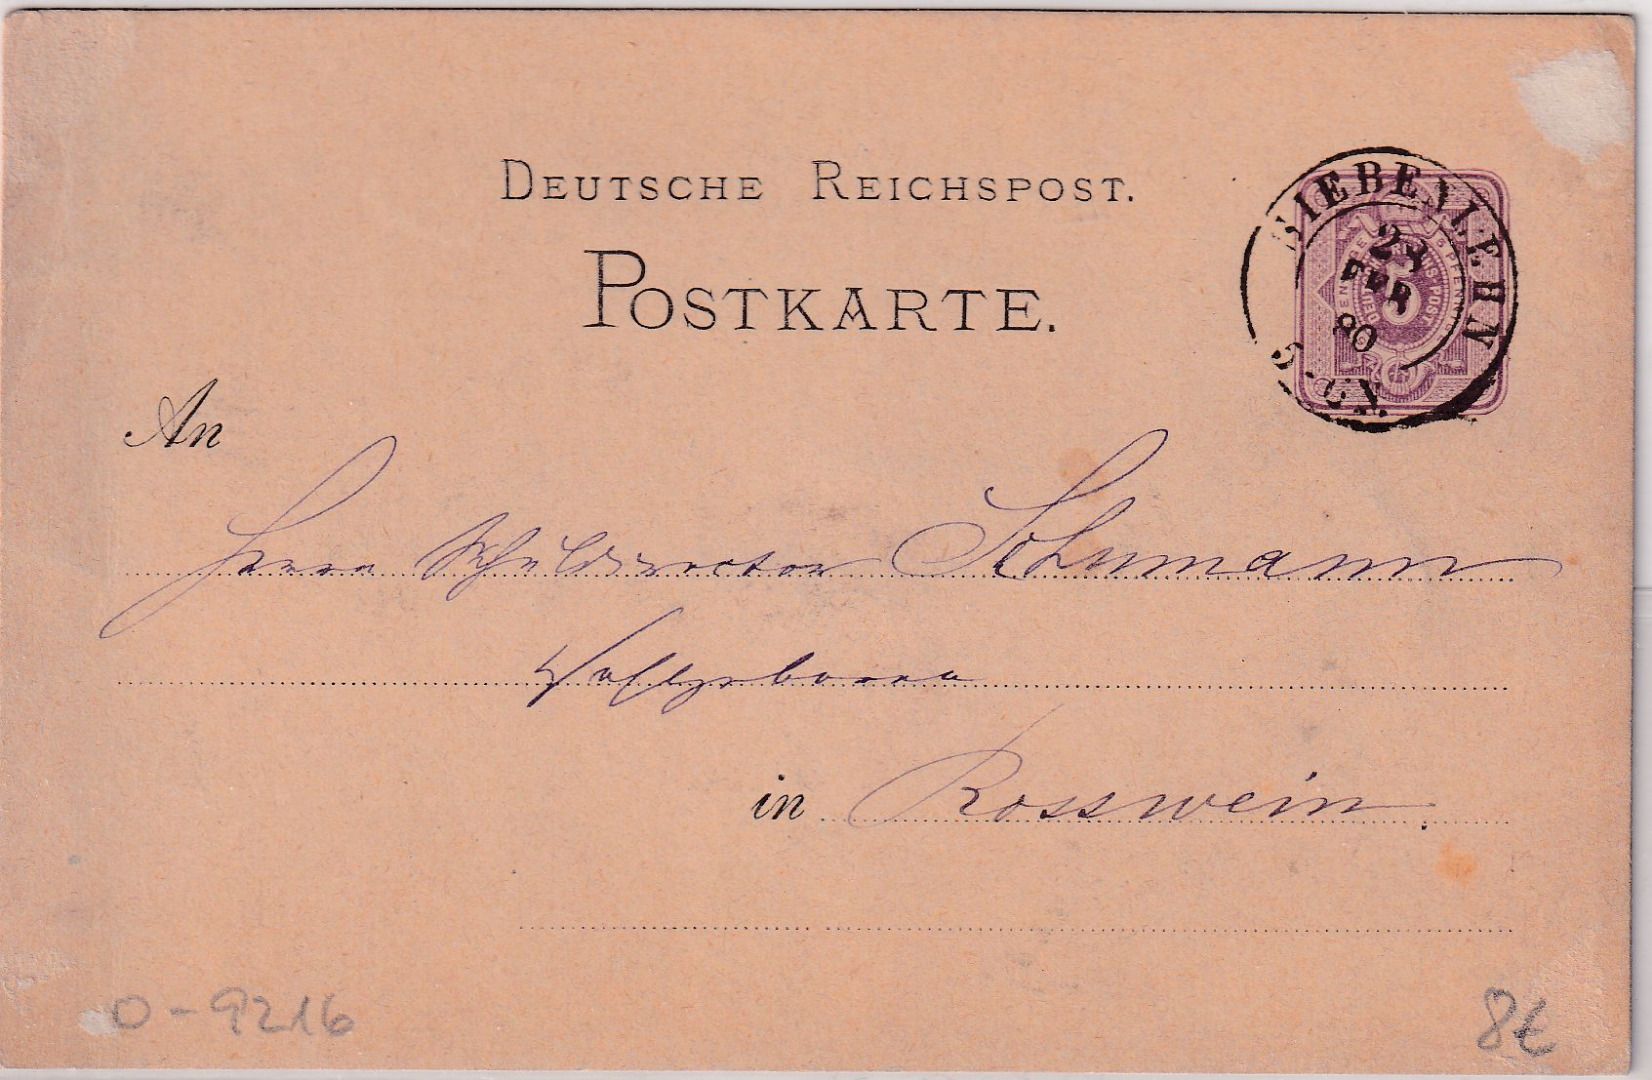 DEUTSCHE REICHSPOST.
POSTKARTE.
SIEBENLERN
23
FEB
80
An
Herrn Schuldirector Schumann
Wohlgeboren
in Rosswein.
0-9216
8€